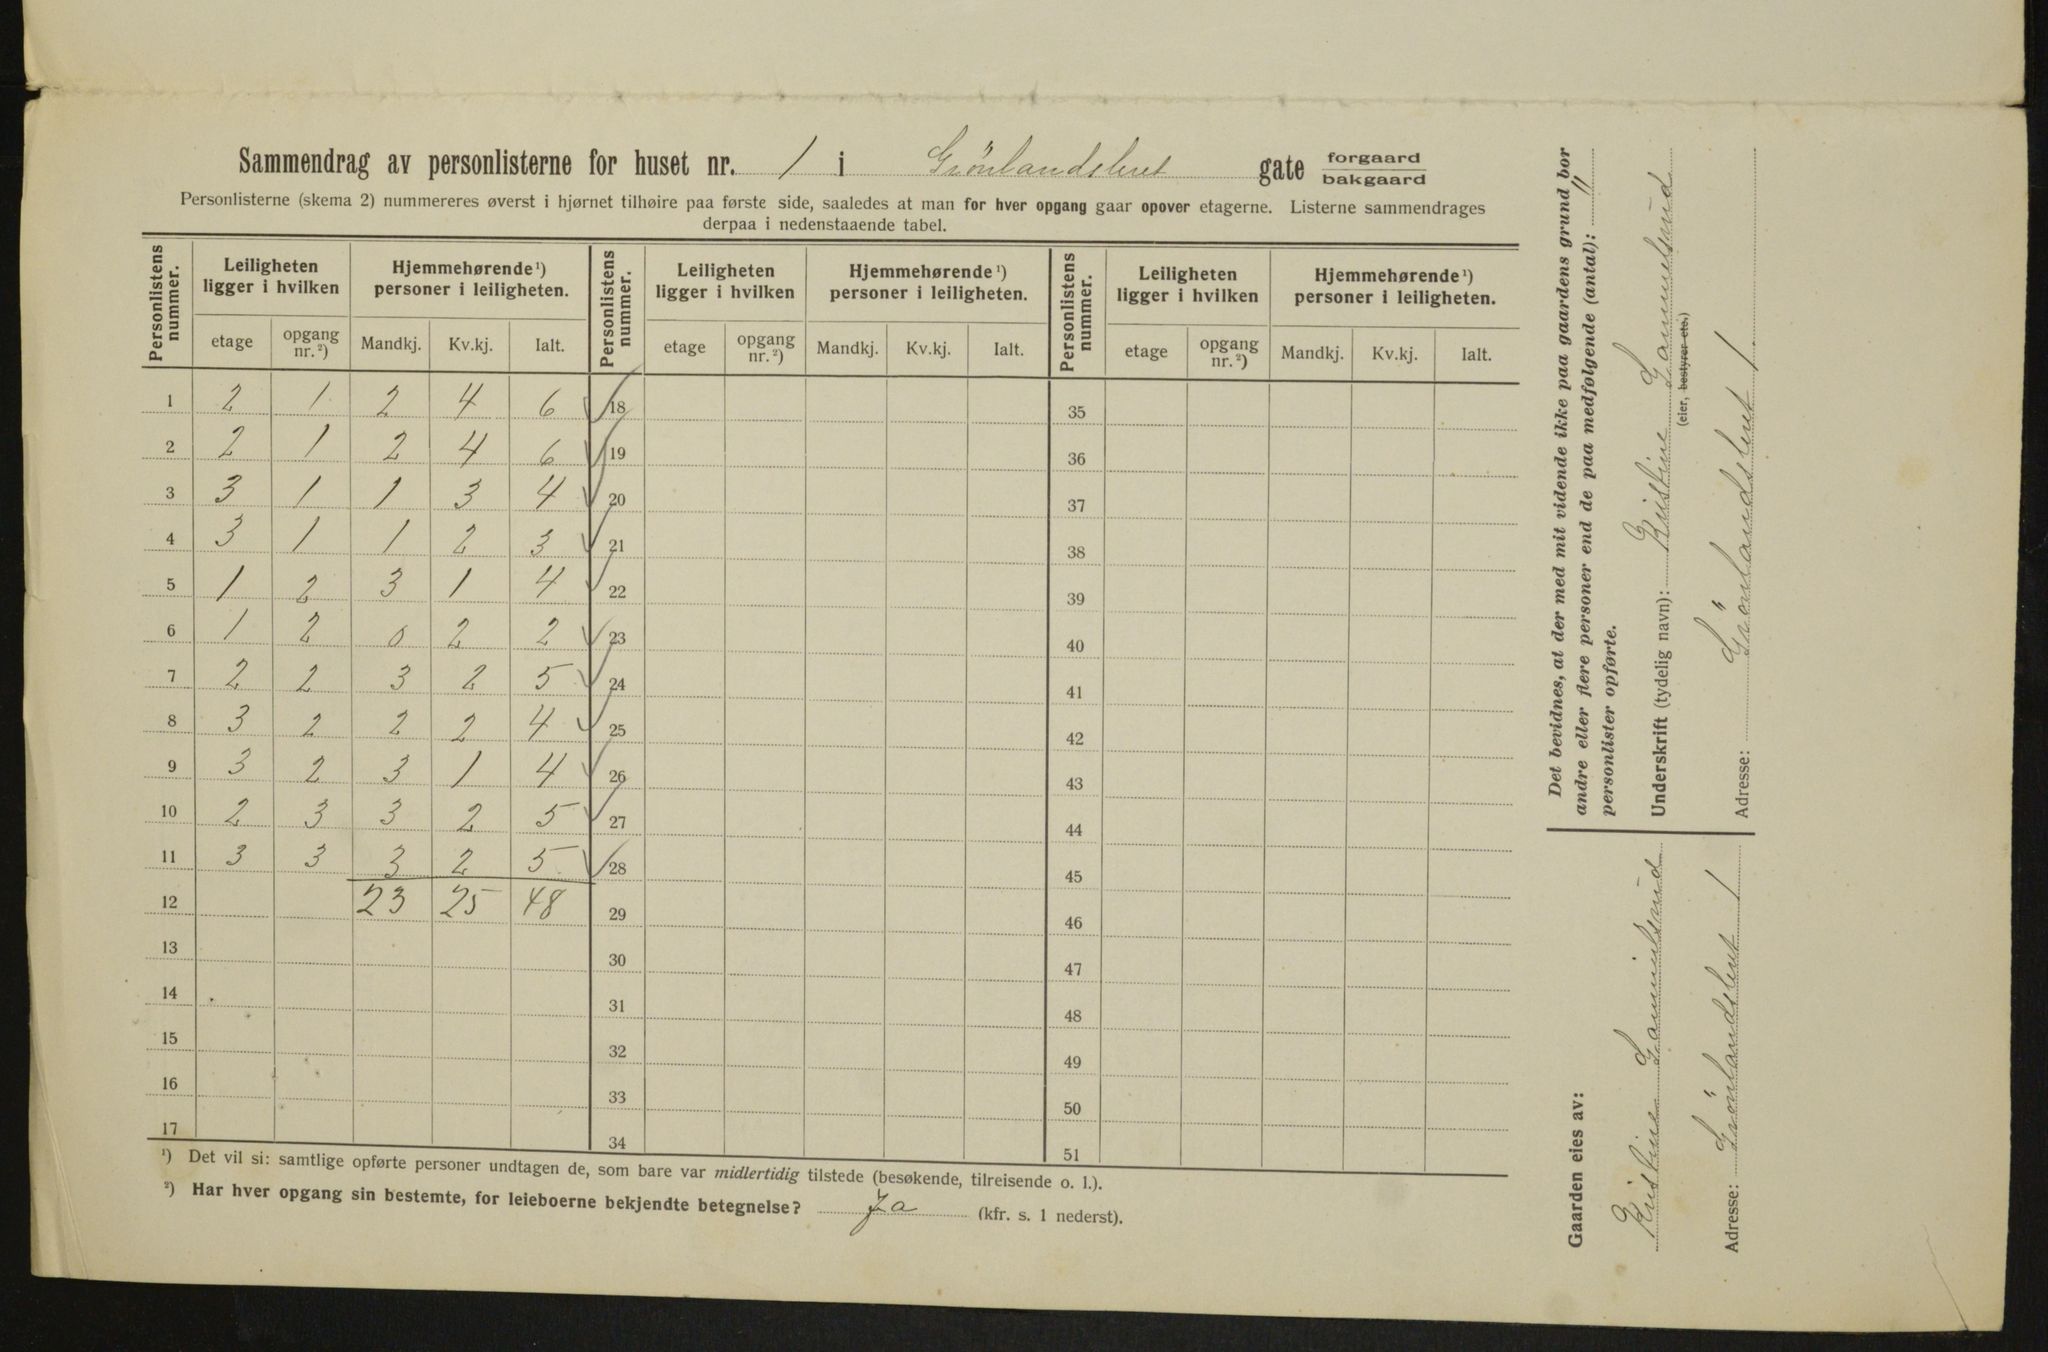 Sammendrag av personlisterne for huset nr. 1 i Grönlandsleret gate forgaard
bakgaard
Personlisterne (skema 2) nummereres øverst i hjørnet tilhøire paa første side, saaledes at man for hver opgang gaar opover etagerne. Listerne sammendrages
derpaa i nedenstaaende tabel.
Personlistens nummer. Leiligheten ligger i hvilken Hjemmehørende¹) personer i leiligheten. Personlistens nummer. Leiligheten ligger i hvilken Hjemmehørende¹) personer i leiligheten. Personlistens nummer. Leiligheten ligger i hvilken Hjemmehørende¹) personer i leiligheten.
etage opgang nr.²) Mandkj. Kv.kj. Ialt. etage opgang nr.²) Mandkj. Kv.kj. Ialt. etage opgang nr.²) Mandkj. Kv.kj. Ialt.
1 2 1 2 4 6 18 35
2 2 1 2 4 6 19 36
3 3 1 1 3 4 20 37
4 3 1 1 2 3 21 38
5 1 2 3 1 4 22 39
6 1 2 0 2 2 23 40
7 2 2 3 2 5 24 41
8 3 2 2 2 4 25 42
9 3 2 3 1 4 26 43
10 2 3 3 2 5 27 44
11 3 3 3 2 5 28 45
12 23 25 48 29 46
13 30 47
14 31 48
15 32 49
16 33 50
17 34 51
¹) Det vil si: samtlige opførte personer undtagen de, som bare var midlertidig tilstede (besøkende, tilreisende o. l.).
²) Har hver opgang sin bestemte, for leieboerne bekjendte betegnelse? Ja (kfr. s. 1 nederst).
Det bevidnes, at der med mit vidende ikke paa gaardens grund bor
andre eller flere personer end de paa medfølgende (antal): 11
personlister opførte.
Underskrift (tydelig navn): Kristine Samuelsrud
(eier, bestyrer etc.)
Adresse: Grönlandsleret 1
Gaarden eies av:
Kristine Samuelsrud
Adresse: Grönlandsleret 1